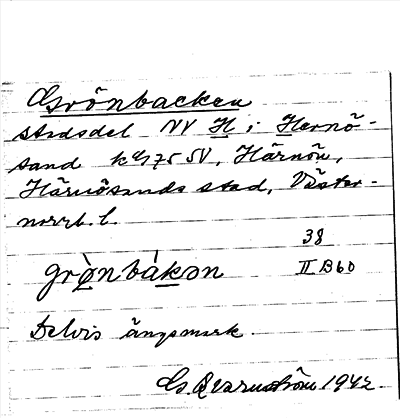 Grönbacken
stadsdel NV H i Hernö-
sand kbl 75 SV, Härnön,
Härnösands stad, Väster-
norrl. l.
38
grǫ̀nbákən II B60
Delvis ängsmark.
Gs. Qvarnström 1942.